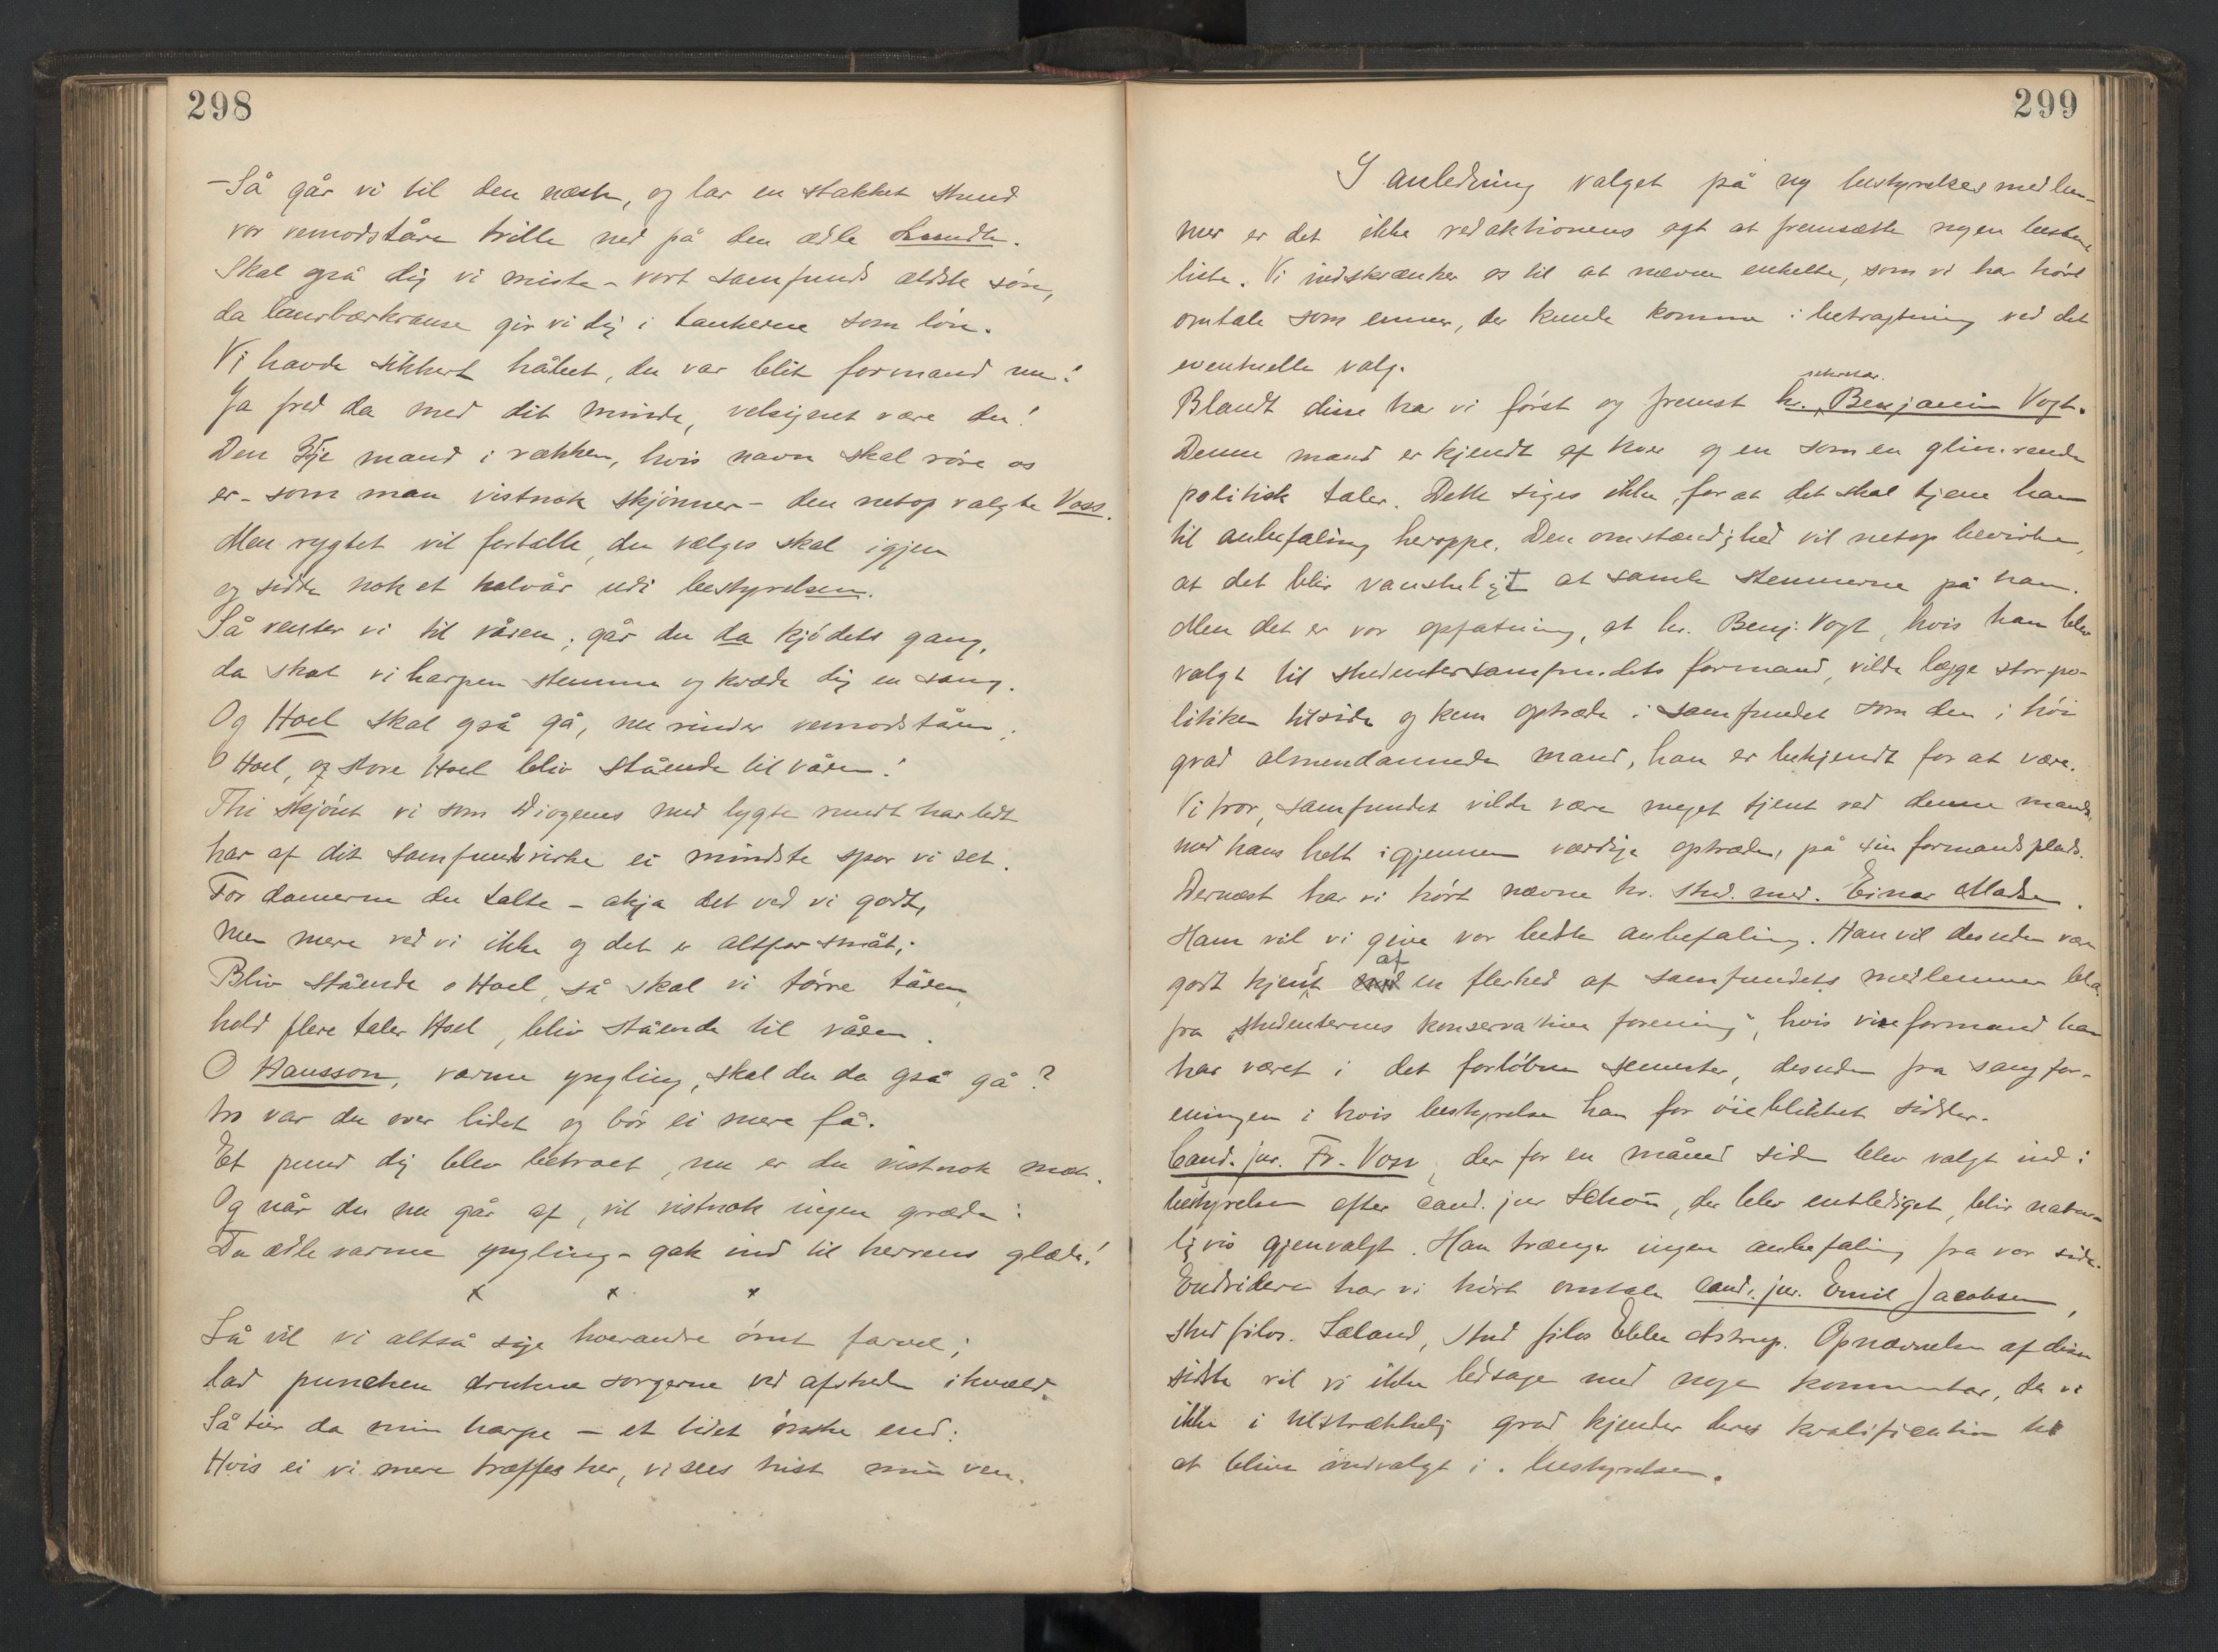 298
-Så går vi til den næste, og lar en stakket stund
vor vemodståre trille ned på den ædle
Skal også dig vi miste - vort samfunds ældste søn,
da laurbærkranse gir vi dig i tankerne som løn.
Vi havde sikkert håbet, du var blit formand nu!
Ja fred da med dit minde, velsignet være du!
Den 3dje mand i rækken, hvis navn skal røre os
er - som man vistnok skjønner - den netop valgte Voss.
Men rygtet vil fortælle, du vælges skal igjen
og sidde nok et halvår udi bestyrelsen.
Så venter vi til våren; går du da kjødets gang,
da skal vi harpen stemme og kvæde dig en sang.
Og Hoel skal også gå, nu rinder vemodståren;
O Hoel, o store Hoel bliv stående til våren!
Thi skjønt vi som Diogenes med lygte rundt har ledt
har af dit samfundsvirke ei mindste spor vi set.
For damerne du talte - akja det ved vi godt,
men mere ved vi ikke og det er altfor småt;
Bliv stående o Hoel, så skal vi tørre tåren,
hold flere taler Hoel, bliv stående til våren.
O Hansson, varme yngling, skal du da også gå?
tro var du over lidet og bør ei mere få.
Et pund dig blev betroet, nu er du vistnok mæt.
Og når du nu går af, vil vistnok ingen græde:
Du ædle varme yngling - gak ind til herrens glæde!
x x x
Så vil vi altså sige hverandre ømt farvel;
lad punchen drukne sorgerne ved afskeden ikvæld.
Så tier da min harpe - et lidet ønske end:
Hvis ei vi mere træffes her, vi sees hist min ven.
299
I anledning valget på ny bestyrelsesmedlem-
mer er det ikke redaktionens agt at fremsætte nogen bestemt
liste. Vi indskrænker os til at nævne enkelte, som vi har hørt
omtale som emner, der kunde komme i betragtning ved det
eventuelle valg.
sekretær.
Blandt disse har vi først og fremst hr. Benjamin Vogt.
Denne mand er kjendt af hver og en som en glimrende
politisk taler. Dette siges ikke, for at det skal tjene ham
til anbefaling heroppe. Den omstændighed vil netop bevirke,
at det blir vanskeligt at samle stemmerne på ham.
Men det er vor opfatning, at hr. Benj. Vogt, hvis han blev
valgt til studentersamfundets formand, vilde lægge storpo-
litiken tilside og kun optræde i samfundet som den i høi
grad almendannede mand, han er bekjendt for at være.
Vi tror, samfundet vilde være meget tjent ved denne mand,
med hans helt igjennem værdige optræden, på sin formandsplads.
Dernæst har vi hørt nævne hr. stud. med. Einar Madsen.
Ham vil vi give vor bedste anbefaling. Han vil desuden være
godt kjendt af en flerhed af samfundets medlemmer bl.a.
fra "studenternes konservative forening", hvis viseformand han
har været i det forløbne semester, desuden fra sangfor-
eningen i hvis bestyrelse han for øieblikket sidder.
Cand. jur. Fr. Voss, der for en måned siden blev valgt ind i
bestyrelsen efter cand. jur Schøn, der blev entlediget, blir natur-
ligvis gjenvalgt. Han trænger ingen anbefaling fra vor side.
Endvidere har vi hørt omtale cand. jur. Emil Jacobsen,
stud filos. Sæland, stud filos Ebbe Astrup. Opnævnelsen af disse
sidste vil vi ikke ledsage med nogen kommentar, da vi
ikke i tilstrækkelig grad kjender deres kvalifikation til
at blive indvalgt i bestyrelsen.